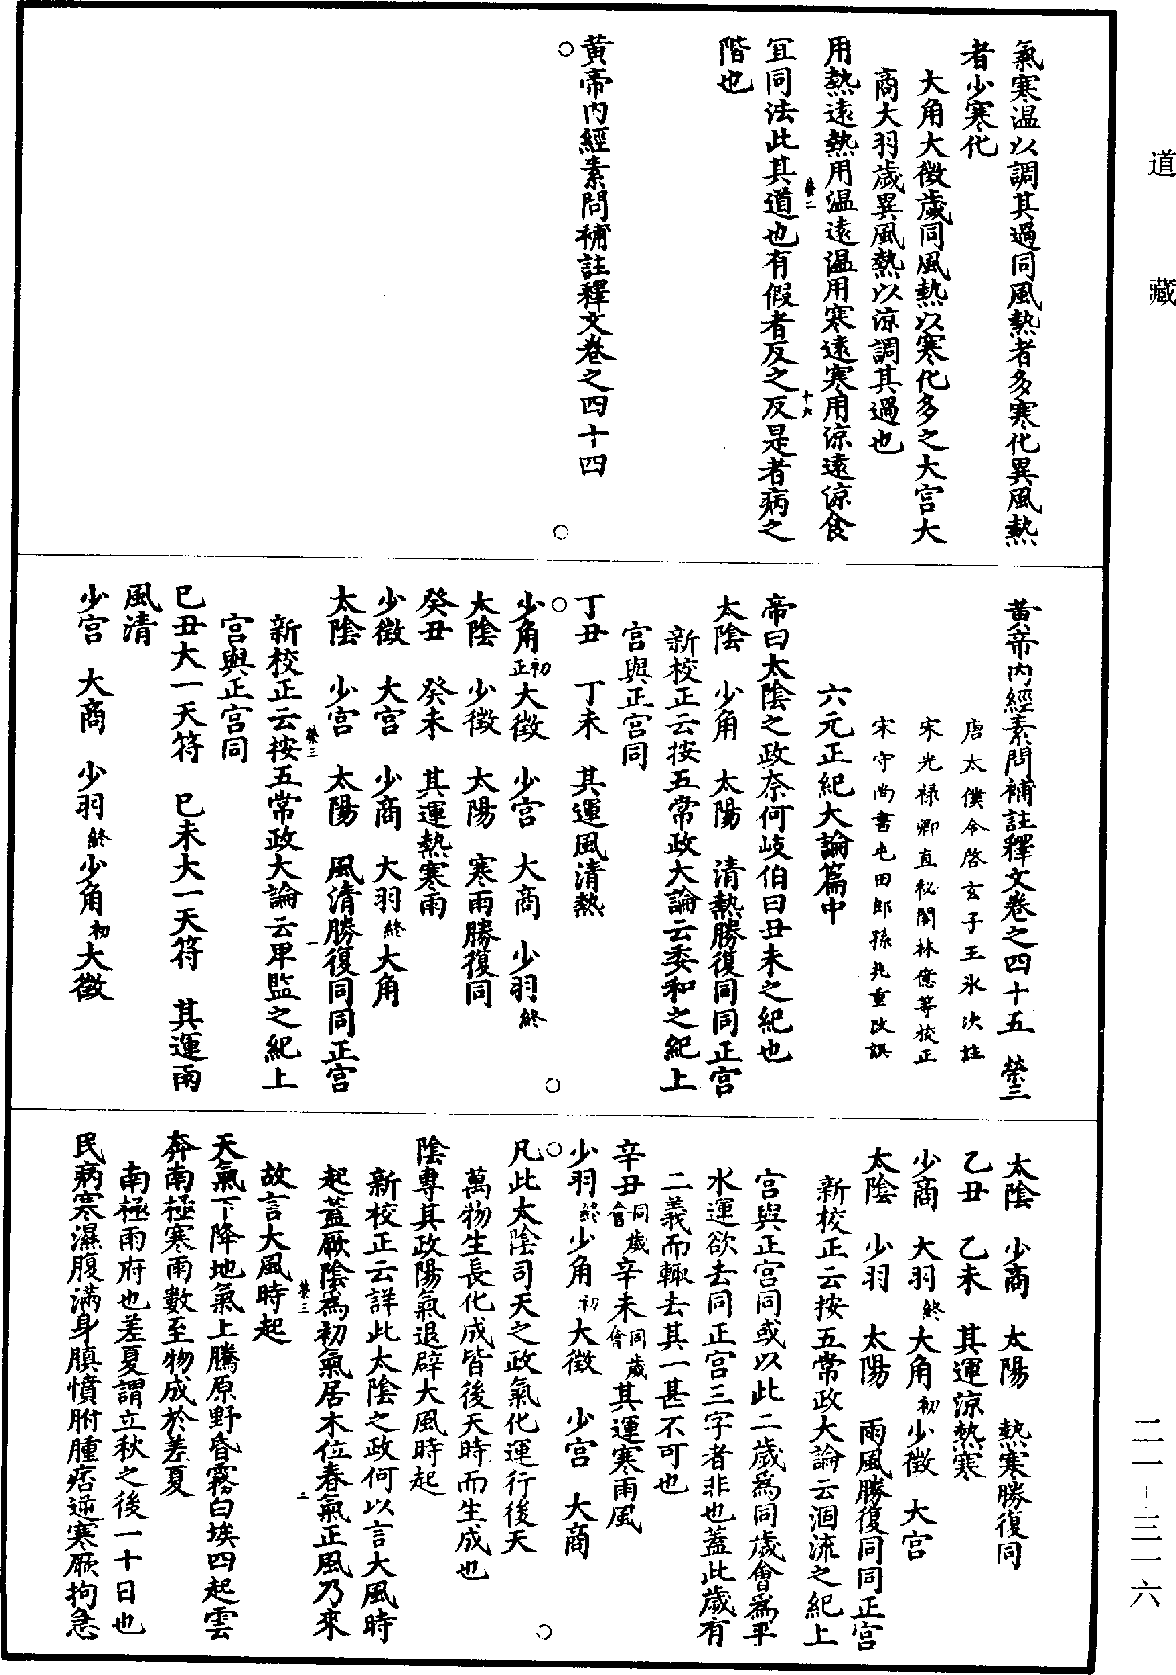 道藏
氣寒温以調其過同風熱者多寒化異風熱
者少寒化
大角大徵歲同風熱以寒化多之大宫大
商大羽歲異風熱以涼調其過也
用熱遠熱用温遠温用寒遠寒用涼遠涼食
宜同法此其道也有假者反之反是者病之
階也
黄帝内經素問補註釋文卷之四十四
黄帝内經素問補註釋文卷之四十五 榮三
唐太僕令啓玄子王氷次註
宋光禄卿直秘閣林億等校正
宋守尚書屯田郎孫兆重改誤
六元正紀大論篇中
帝曰太陰之政奈何岐伯曰丑未之紀也
太陰 少角 太陽 清熱勝復同同正宫
新校正云按五常政大論云委和之紀上
宫與正宫同
丁丑 丁未 其運風清熱
少角初正大徵 少宫 大商 少羽終
太陰 少徵 太陽 寒雨勝復同
癸丑 癸未 其運熱寒雨
少徵 大宫 少商 大羽終大角
太陰 少宫 太陽 風清勝復同同正宫
新校正云按五常政大論云卑監之紀上
宫與正宫同
巳丑大一天符 巳未大一天符 其運雨
風清
少宫 大商 少羽終少角初大徵
太陰 少商 太陽 熱寒勝復同
乙丑 乙未 其運涼熱寒
少商 大羽終大角初少徵 大宫
太陰 少羽 太陽 雨風勝復同同正宫
新校正云按五常政大論云涸流之紀上
宫與正宫同或以此二歲爲同歲會爲平
水運欲去同正宫三字者非也蓋此歲有
二義而輙去其一甚不可也
辛丑同歲會辛未同歲會其運寒雨風
少羽終少角初大徵 少宫 大商
凡此太陰司天之政氣化運行後天
萬物生長化成皆後天時而生成也
陰專其政陽氣退辟大風時起
新校正云詳此太陰之政何以言大風時
起蓋厥陰爲初氣居木位春氣正風乃來
故言大風時起
天氣下降地氣上騰原野昏霧白埃四起雲
奔南極寒雨數至物成於差夏
南極雨府也差夏謂立秋之後一十日也
民病寒濕腹滿身䐜憤胕腫痞逆寒厥拘急
榮二
十六
榮三
一
榮三
二
二一－三一六